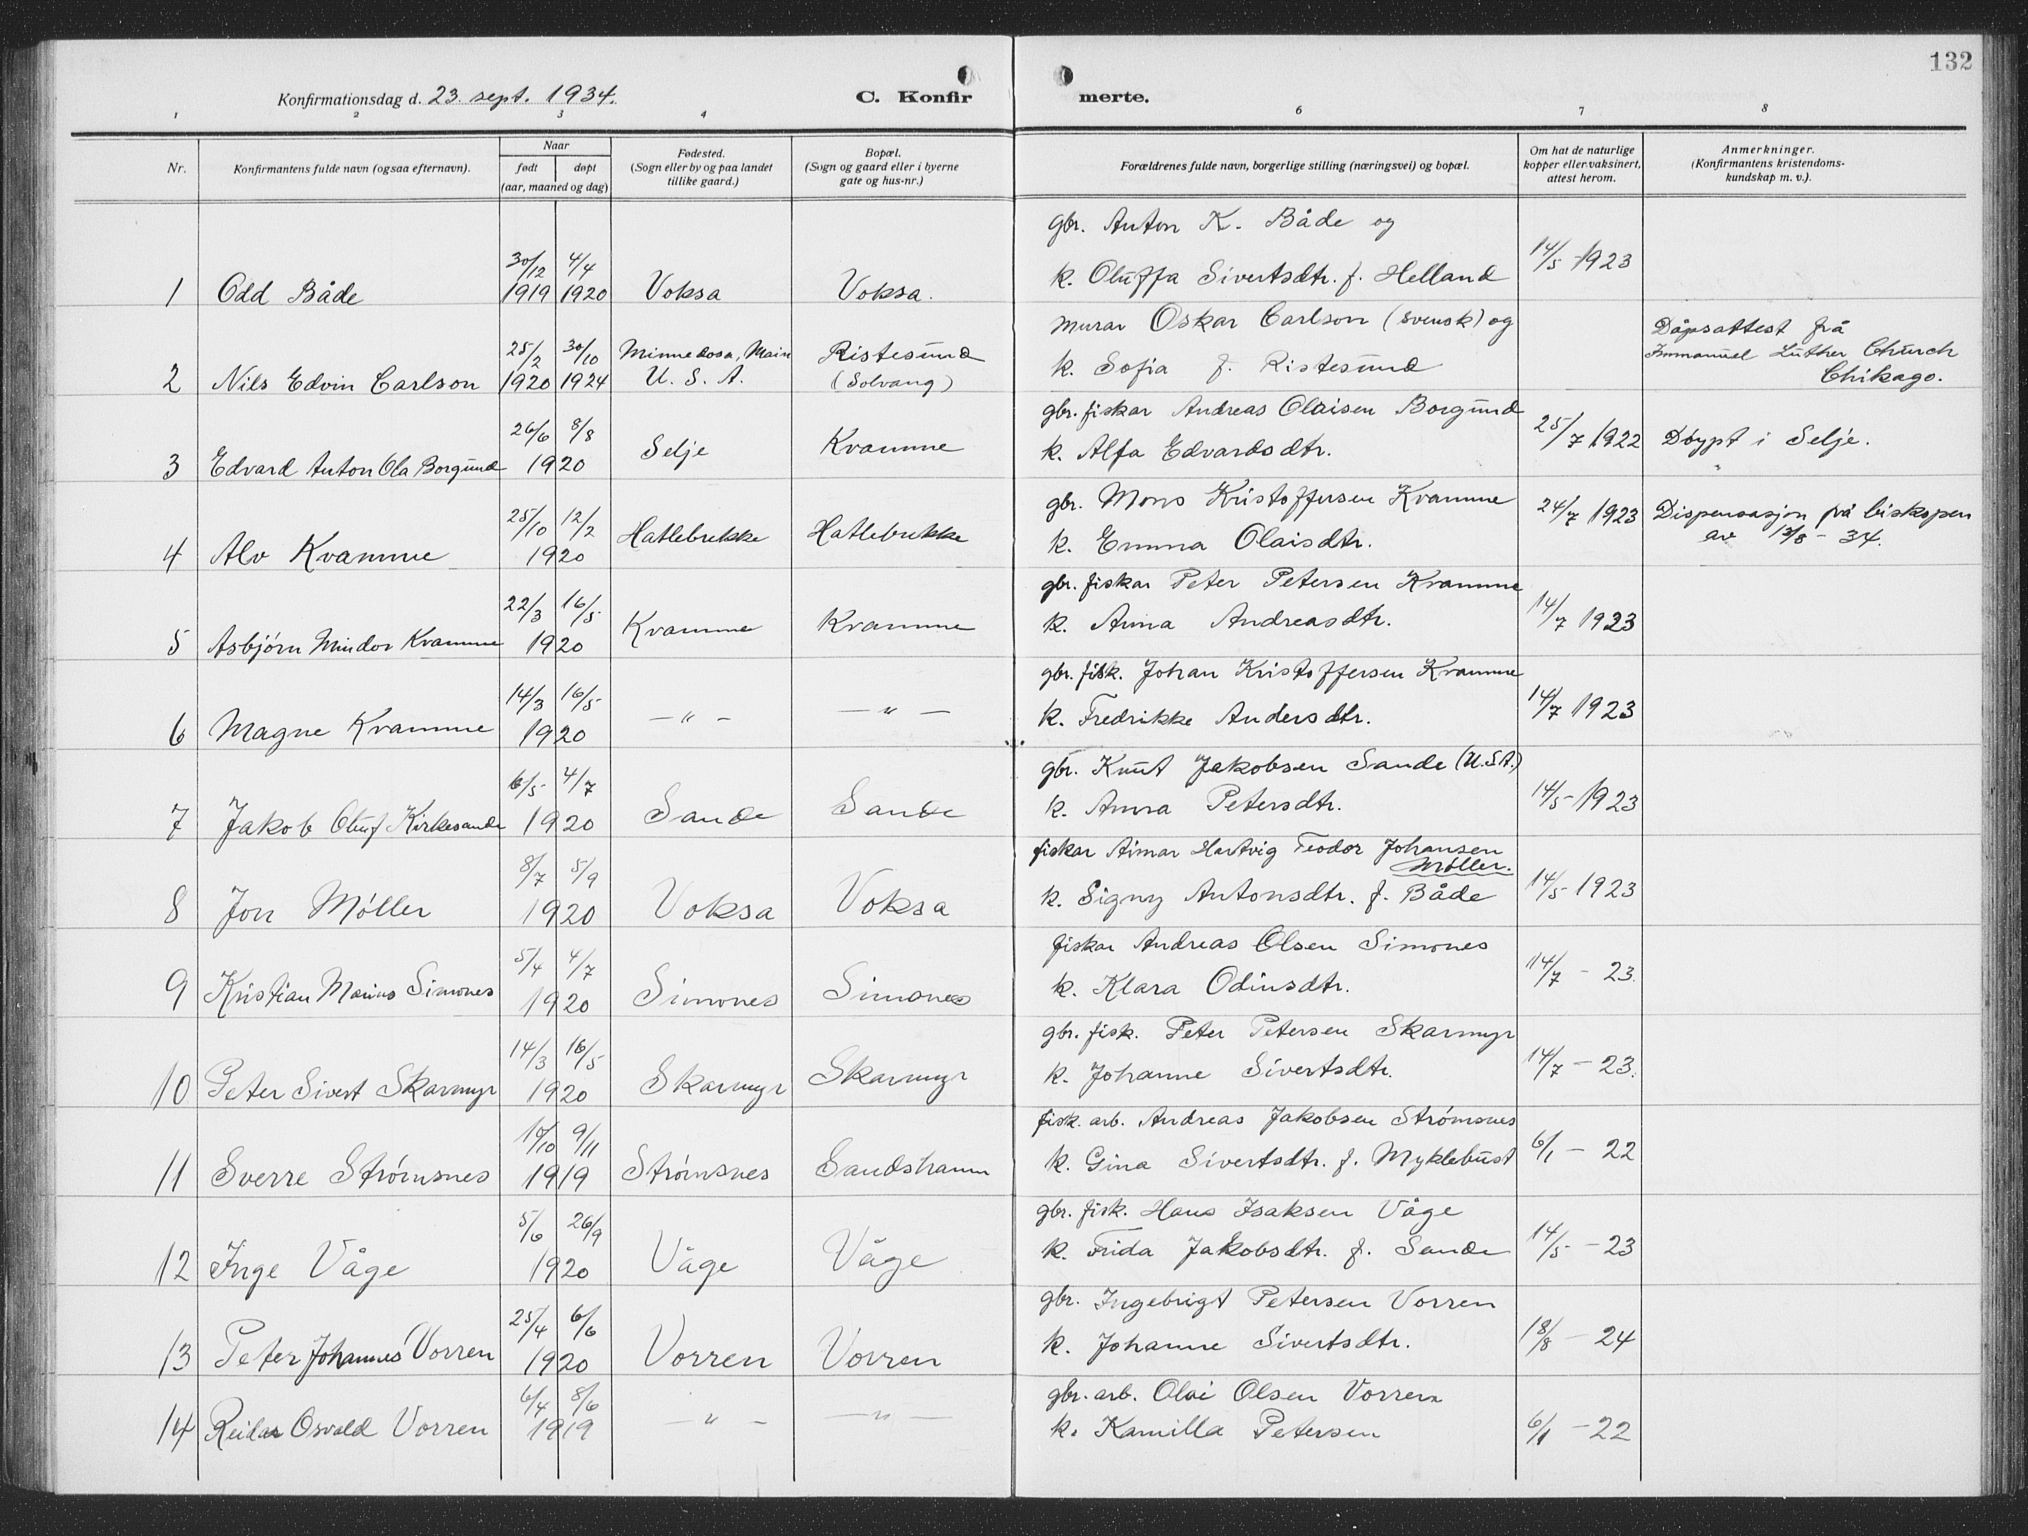 132
Konfirmationsdag d. 23. sept. 1934.
C. Konfirmerte.
1 2 3 4 6 7 8
Nr.
Konfirmantens fulde navn (ogsaa efternavn).
Naar
født døpt
(aar, maaned og dag)
Fødested.
(Sogn eller by og paa landet
tillike gaard.)
Bopæl.
(Sogn og gaard eller i byerne
gate og hus-nr.)
Forældrenes fulde navn, borgerlige stilling (næringsvei) og bopæl.
Om hat de naturlige
kopper eller vaksinert,
attest herom.
Anmerkninger.
(Konfirmantens kristendoms-
kundskap m. v.).
gbr. Anton K. Både og
30/12 4/4 k. Oluffa Sivertsdtr. f. Helland 14/5 - 1923
1 Odd Både 1919 1920 Voksa Voksa.
murar Oskar Carlson (svensk) og Dåpsattest frå
25/2 30/10 Minnedosa, Main Ristesund Immanuel Luther Church
2 Nils Edvin Carlson 1920 1924 U. S. A. (Solvang) k. Sofia f. Ristesund Chikago.
gbr. fiskar Andreas Olaisen Borgund
26/6 8/8 Selje Kvamme k. Alfa Edvardsdtr. 25/7 1922 Døypt i Selje.
3 Edvard Anton Ola Borgund 1920
gbr. Mons Kristoffersen Kvamme 24/7 1923 Dispensasjon frå biskopen
25/10 12/2 Hatlebrekke Hatlebrekke k. Emma Olaisdtr. av 13/8 - 34.
4 Alv Kvamme 1920
gbr. fiskar Peter Petersen Kvamme
22/3 16/5 Kvamme Kvamme k. Anna Andreasdtr. 14/7 1923
5 Asbjørn Mindor Kvamme 1920
gbr. fisk. Johan Kristoffersen Kvamme
14/3 16/5 — " — — " — k. Fredrikke Andersdtr. 14/7 1923
6 Magne Kvamme 1920
gbr. Knut Jakobsen Sande (U.S.A.)
6/5 4/7 Sande Sande k. Anna Petersdtr. 14/5 - 1923
7 Jakob Oluf Kirkesande 1920
fiskar Aimar Hartvig Teodor Johansen
Møller.
8/7 5/9 k. Signy Antonsdtr. f. Både 14/5 - 1923
8 Jon Møller 1920 Voksa Voksa
fiskar Andreas Olsen Simones
5/4 4/7 k. Klara Odinsdtr. 14/7 - 23.
9 Kristian Marius Simones 1920 Simones Simones
gbr. fisk. Peter Petersen Skarmyr
14/3 16/5 k. Johanne Sivertsdtr. 14/7 - 23.
10 Peter Sivert Skarmyr 1920 Skarmyr Skarmyr
fisk. arb. Andreas Jakobsen Strømsnes
10/10 9/11 k. Gina Sivertsdtr. f. Myklebust 6/1 - 22
11 Sverre Strømsnes 1919 Strømsnes Sandshamn
gbr. fisk. Hans Isaksen Våge
5/6 26/9 k. Frida Jakobsdtr. f. Sande 14/5 - 23
12 Inge Våge 1920 Våge Våge
gbr. Ingebrigt Petersen Vorren
25/4 6/6 k. Johanne Sivertsdtr. 18/8 - 24
13 Peter Johannes Vorren 1920 Vorren Vorren
gbr. arb. Olai Olsen Vorren
6/4 8/6 — " — — " — k. Kamilla Petersen 6/1 - 22
14 Reidar Osvald Vorren 1919